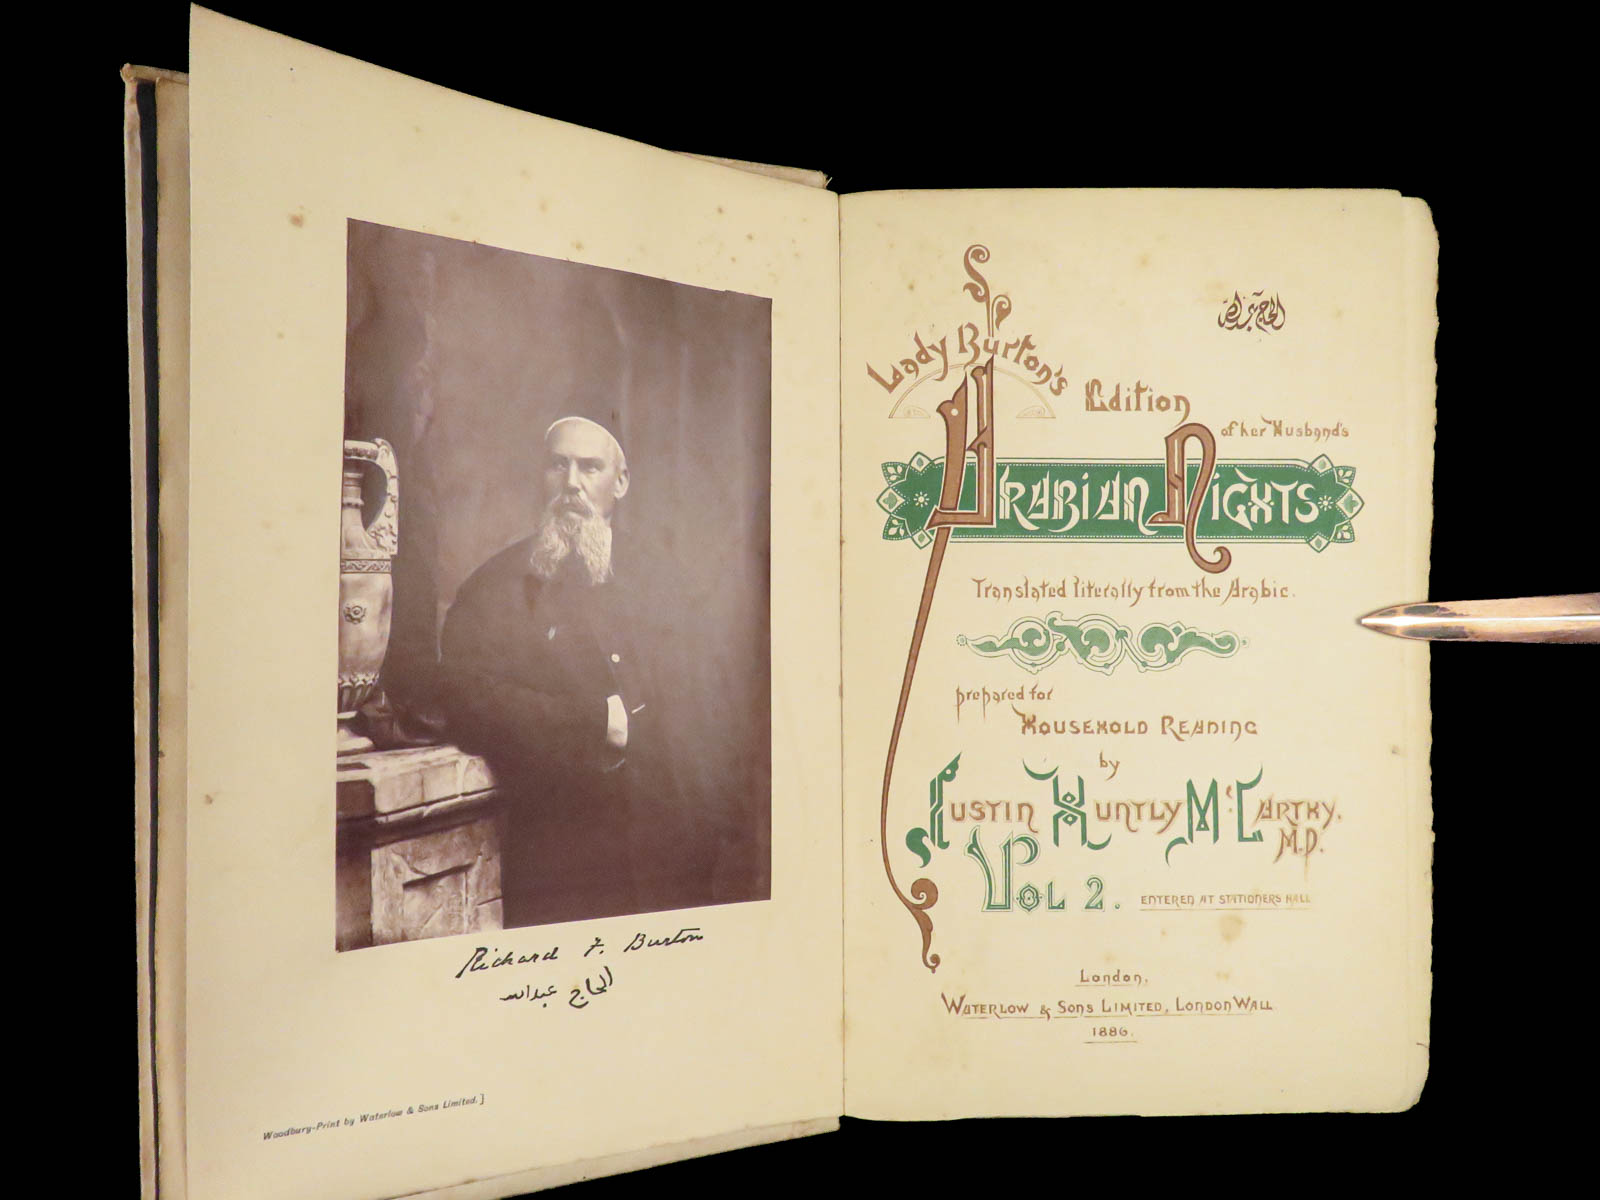 Richard F. Burton
الحاج عبدالله
Woodbury-Print by Waterlow & Sons Limited.]
الحاج عبدالله
Lady Burton's
Edition
of her Husband's
ARABIAN NIGHTS
Translated literally from the Arabic.
prepared for
HOUSEHOLD READING
by
JUSTIN HUNTLY McCARTHY, M.P.
VOL 2.
ENTERED AT STATIONERS HALL
London,
WATERLOW & SONS LIMITED, LONDON WALL
1886.